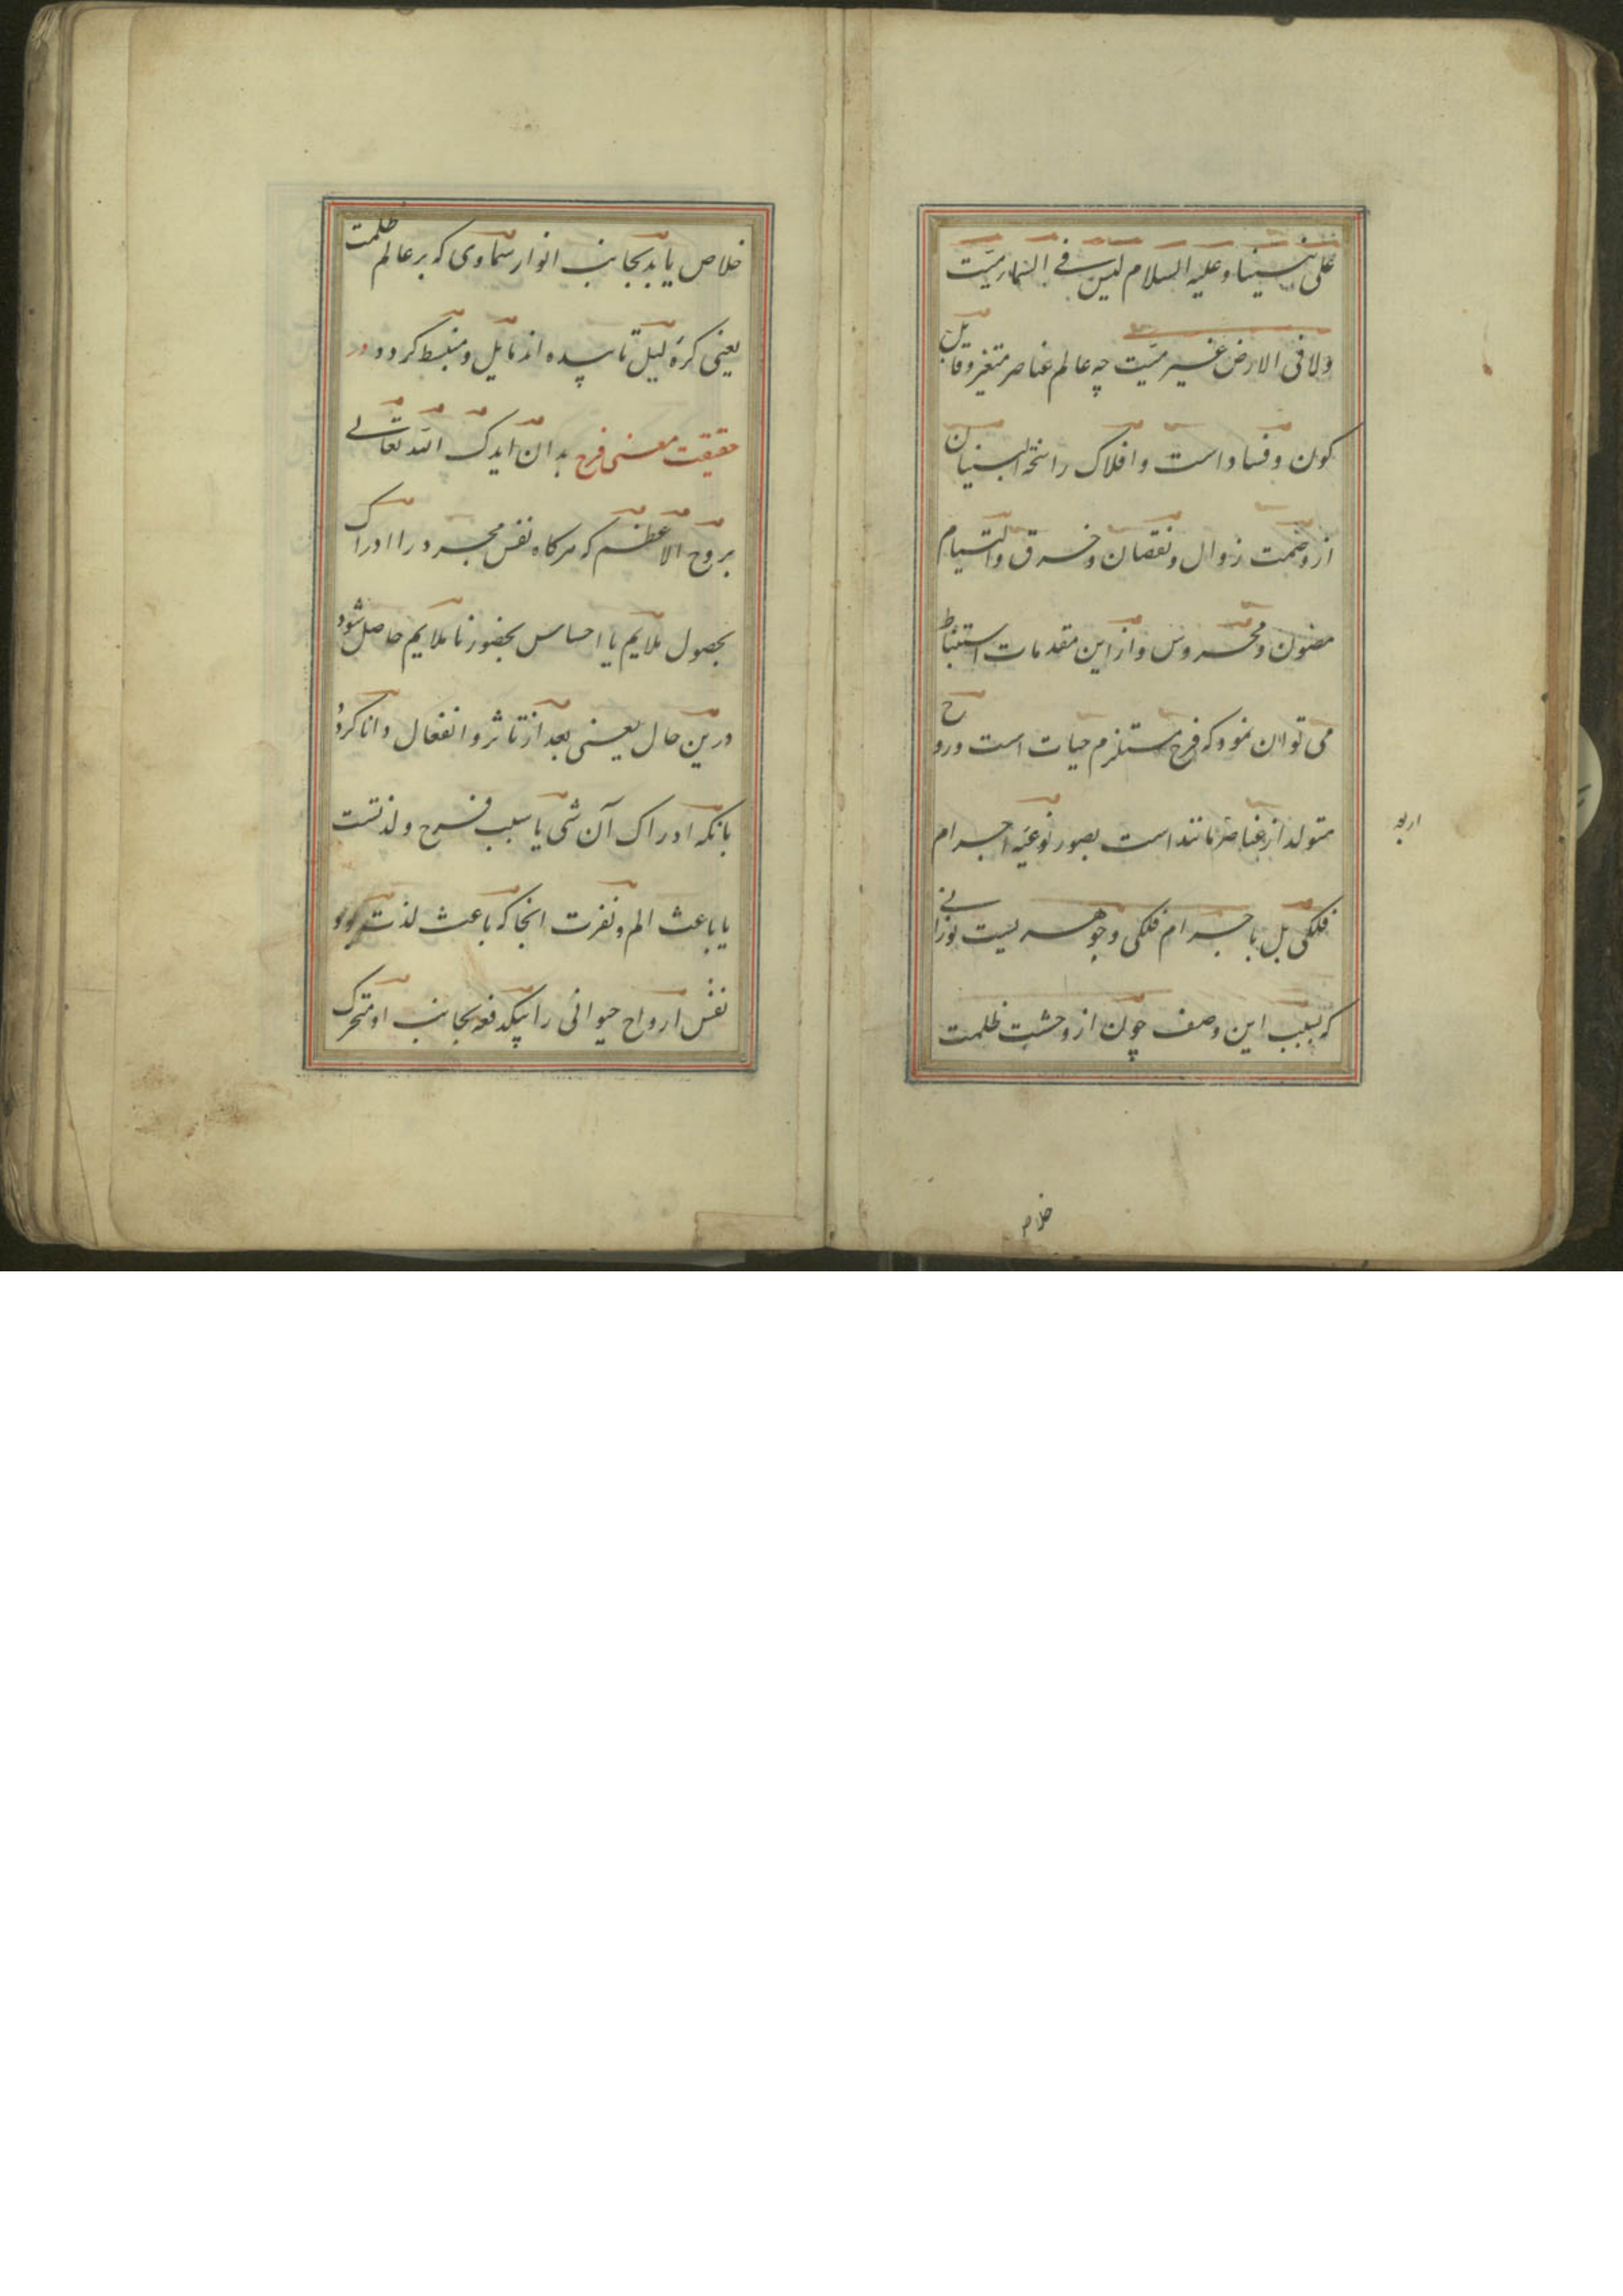 علی نبینا و علیه السلام لیس فی السماء میّت
ولا فی الارض غیر میّت چه عالم عناصر متغیر و قابل
کون و فساد است و افلاک را
از وصمت زوال و نقصان و خرق و التیام
مصون و محروس و از این مقدمات استنباط
می توان نمود که فرح مستلزم حیات است و روح
متولد از عناصر مانند است بصور نوعیّه اجرام
اربعه
فلکی بل با جرام فلکی و جوهریست نورانی
که بسبب این وصف چون از وحشت ظلمت
خلاص
خلاص یابد بجانب انوار سماوی که بر عالم ظلمت
یعنی کرهٔ لیل تابیده اند مایل و منبسط کردد در
حقیقت معنی فرح بدان ایدک الله تعالی
بروح الاعظم که هرکاه نفس مجرد را ادراک
بحصول ملایم یا احساس بحضور ناملایم حاصل شود
درین حال یعنی بعد از تاثر و انفعال دانا کردد
بانکه ادراک آن شی یا سبب فرح و لذتست
یا باعث الم و نفرت انجا که باعث لذت بود
نفس ارواح حیوانی را بیکدفعه بجانب او متحرک